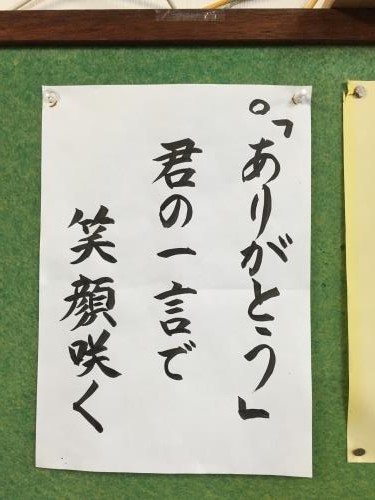 ○「ありがとう」
君の一言で
笑顔咲く